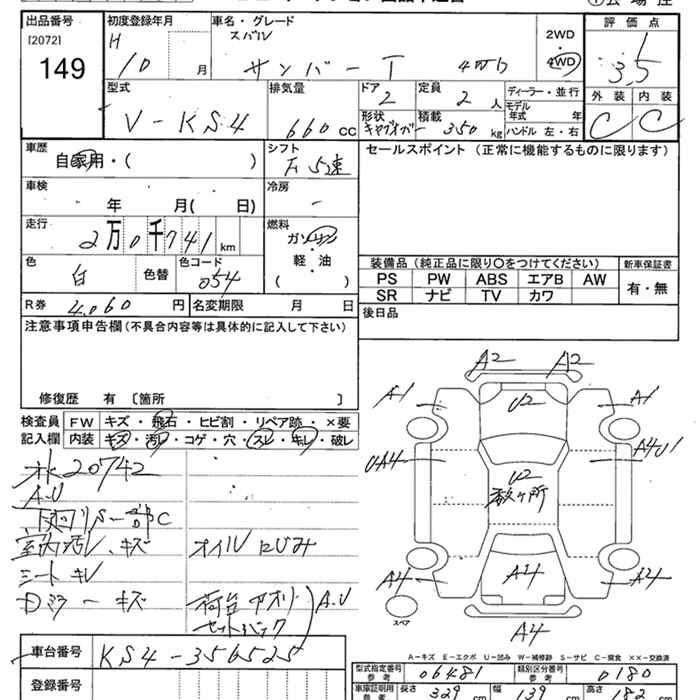 出品番号 初度登録年月 車名・グレード 評価点
[2072] H スバル 2WD
149 10 月 サンバー T 4WD 4WD 3.5
型式 排気量 ドア 定員 ディーラー・並行 外装 内装
V-KS4 660 CC 2 2 人 モデル年式 年 C C
形状 積載 キャブオーバー 350 kg ハンドル 左・右
車歴 シフト セールスポイント (正常に機能するものに限ります)
自家用・( ) F 5速
車検 冷房
年 月( 日) -
走行 燃料
2万0千741 km ガソリン
色 色替 色コード 軽・油
白 054 ( )
装備品 (純正品に限り○をつけてください) 新車保証書
PS PW ABS エアB AW 有・無
SR ナビ TV カワ
R券 4,060 円 名変期限 月 日 後日品
注意事項申告欄 (不具合内容等は具体的に記入して下さい)
修復歴 有 〔箇所 〕
検査員 FW キズ・飛石・ヒビ割・リペア跡・×要
記入欄 内装 キズ・汚レ・コゲ・穴・スレ・キレ・破レ
20742
A.U
下廻りS 一部C
室内汚レ、キズ オイルにじみ
シートキレ
Dミラーキズ 荷台 アオリ A.U
セットバック
A2 A2
A1 U2 A1
UA4 U2 A4U1
数ヶ所
A4 A4 A4
スペア A4
A-キズ E-エクボ U-凹み W-補修跡 S-サビ C-腐食 ××-交換済
車台番号 KS4-356525
登録番号
型式指定番号 参考 06481 類別区分番号 参考 0180
車庫証明用 参考 長さ 329 cm 幅 139 cm 高さ 182 cm